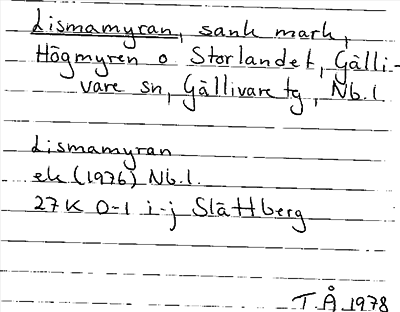 Lismamyran, sank mark,
Högmyren o Storlandet, Gälli-
vare sn, Gällivare tg, Nb.l.
Lismamyran
ek (1976) Nb.l.
27K 0-1 i-j Slättberg
T.Å 1978